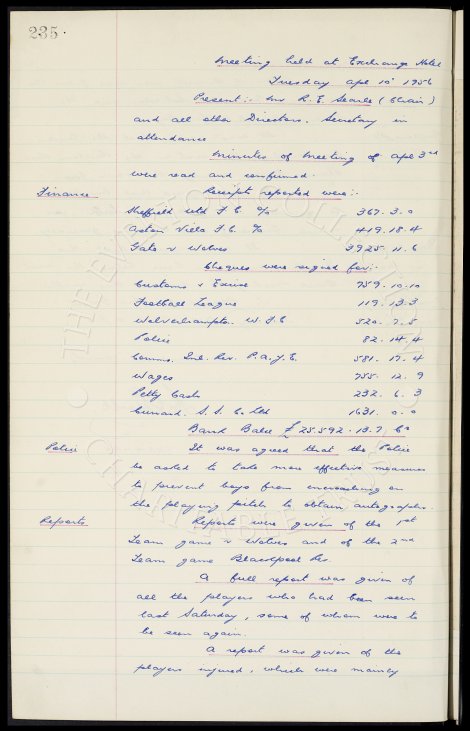 235.
Meeting held at Exchange Hotel
Tuesday Apl 10' 1956
Present:- Mr R. E. Searle (Chair)
and all other Directors. Secretary in
attendance
Minutes of Meeting of Apl 3rd
were read and confirmed.
Finance Receipts reported were:-
Sheffield Utd F.C. % 367. 3. 0
Aston Villa F.C. % 419. 18. 4
Gate v Wolves 3925. 11. 6
Cheques were signed for:-
Customs & Excise 759. 10. 10
Football League 119. 13. 3
Wolverhampton. W. F.C 520. 7. 5
Police 82. 14. 4
Comms. Inl. Rev. P.A.Y.E. 581. 17. 4
Wages 755. 12. 9
Petty Cash 232. 6. 3
Cunard. S. S. Co Ltd 1631. 0. 0
Bank Balce £25.592. 13. 7. Cr
Police It was agreed that the Police
be asked to take more effective measures
to prevent boys from encroaching on
the playing pitch to obtain autographs.
Reports Reports were given of the 1st
Team game v Wolves and of the 2nd
Team game Blackpool Res.
A full report was given of
all the players who had been seen
last Saturday, some of whom were to
be seen again.
A report was given of the
players injured, which were mainly
THE EVERTON COLLECTION
CHARITABLE TRUST